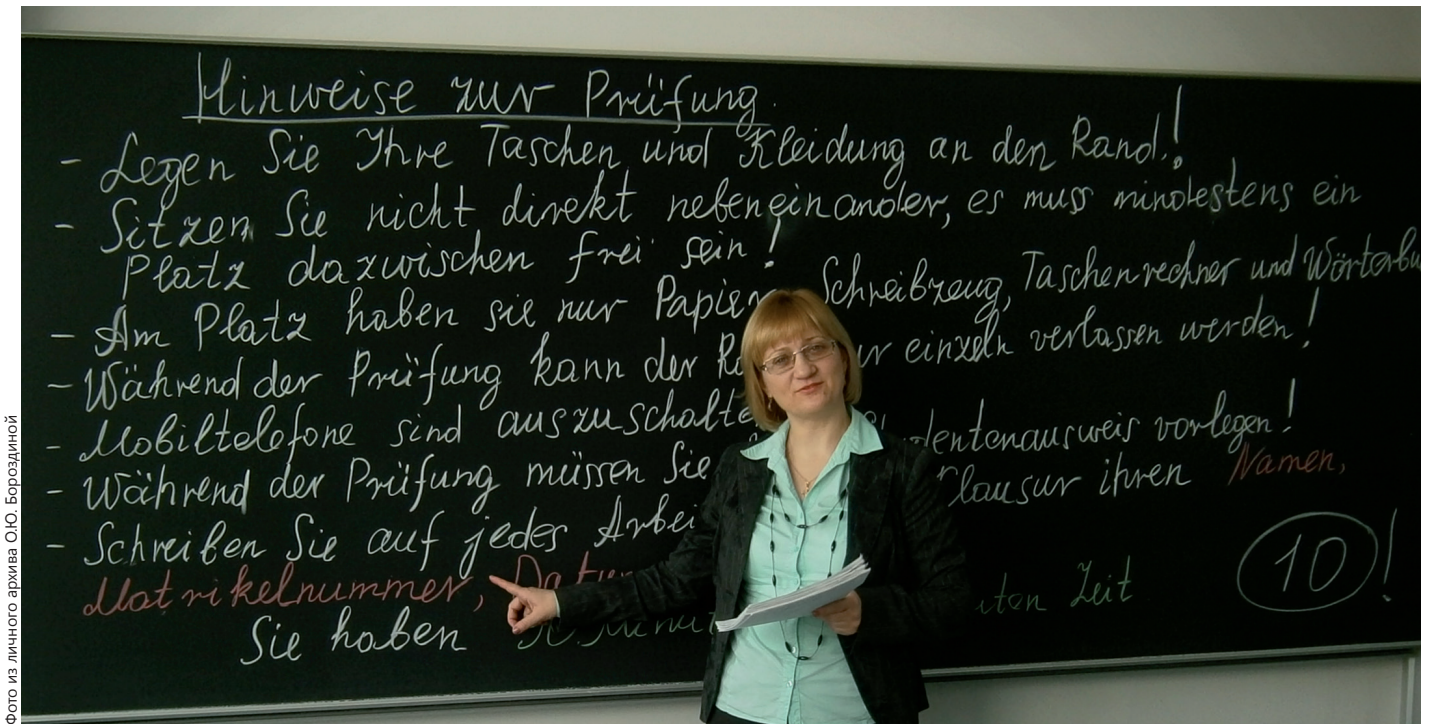 Hinweise zur Prüfung.
- Legen Sie Ihre Taschen und Kleidung an den Rand!
- Sitzen Sie nicht direkt nebeneinander, es muss mindestens ein
Platz dazwischen frei sein!
- Am Platz haben sie nur Papier, Schreibzeug, Taschenrechner und Wörterbu
- Während der Prüfung kann der Ra ur einzeln verlassen werden!
- Mobiltelefone sind auszuschalte
- Während der Prüfung müssen Sie dentenausweis vorlegen!
- Schreiben Sie auf jedes Arbei Clausur ihren Namen,
Matrikelnummer, Datu
Sie haben Minut uten Zeit
10!
Фото из личного архива О.Ю. Бороздиной